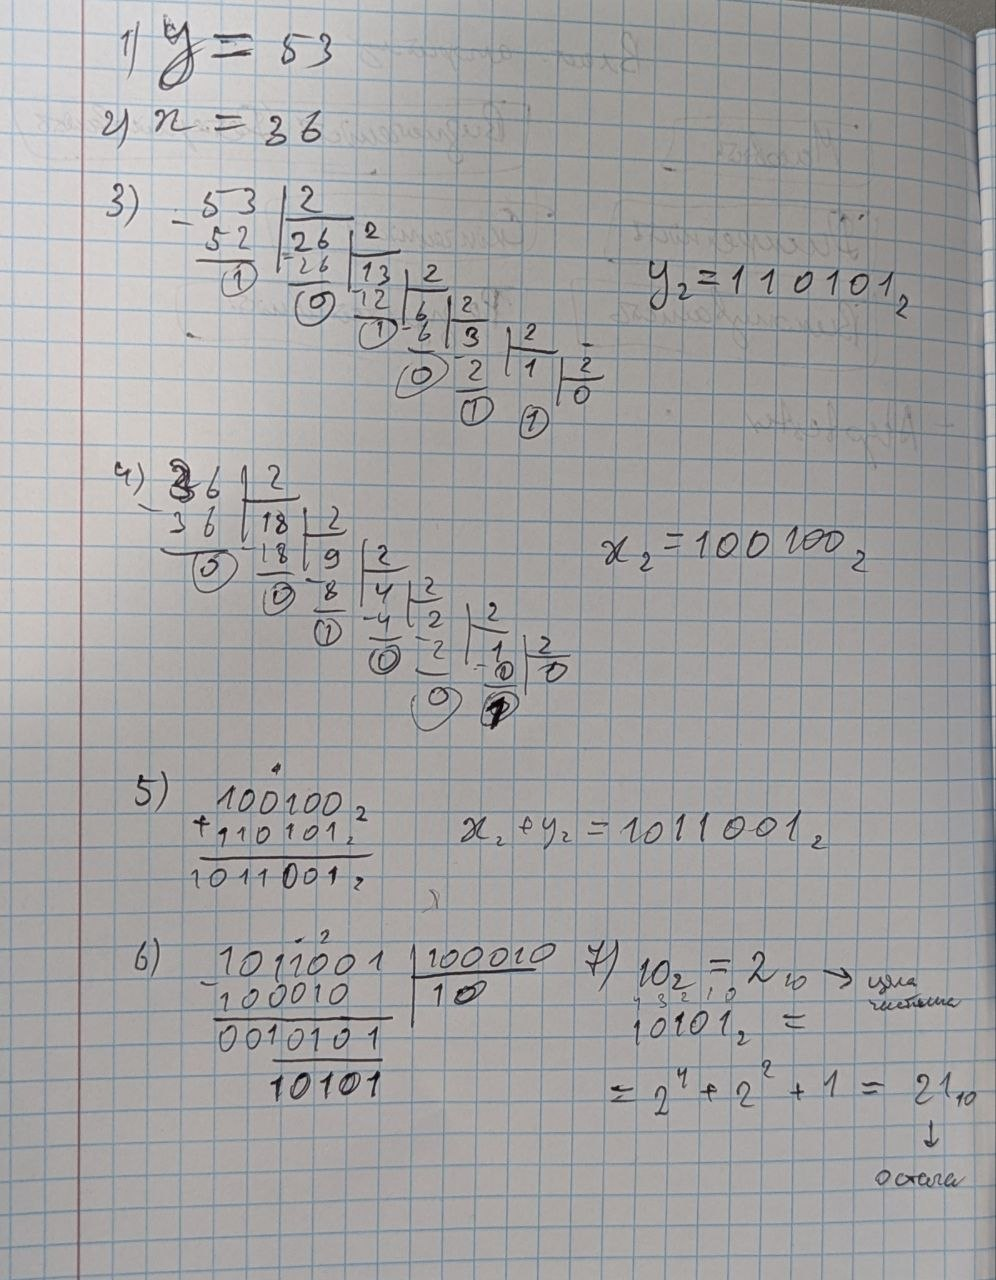 1) y = 53
2) x = 36
3) 53 | 2
- 52 | 26 | 2
1 - 26 | 13 | 2
0 - 12 | 6 | 2
1 - 6 | 3 | 2
0 - 2 | 1 | 2
1 1 0
y₂ = 110101₂
4) 36 | 2
- 36 | 18 | 2
0 - 18 | 9 | 2
0 - 8 | 4 | 2
1 - 4 | 2 | 2
0 - 2 | 1 | 2
0 - 0 0
1
x₂ = 100100₂
5) 100100₂
+ 110101₂
1011001₂
x₂ + y₂ = 1011001₂
6) 1011001 | 100010
- 100010 | 10
0010101
10101
7) 10₂ = 2₁₀ → ціла
частина
4 3 2 1 0
10101₂ =
= 2⁴ + 2² + 1 = 21₁₀
↓
остача